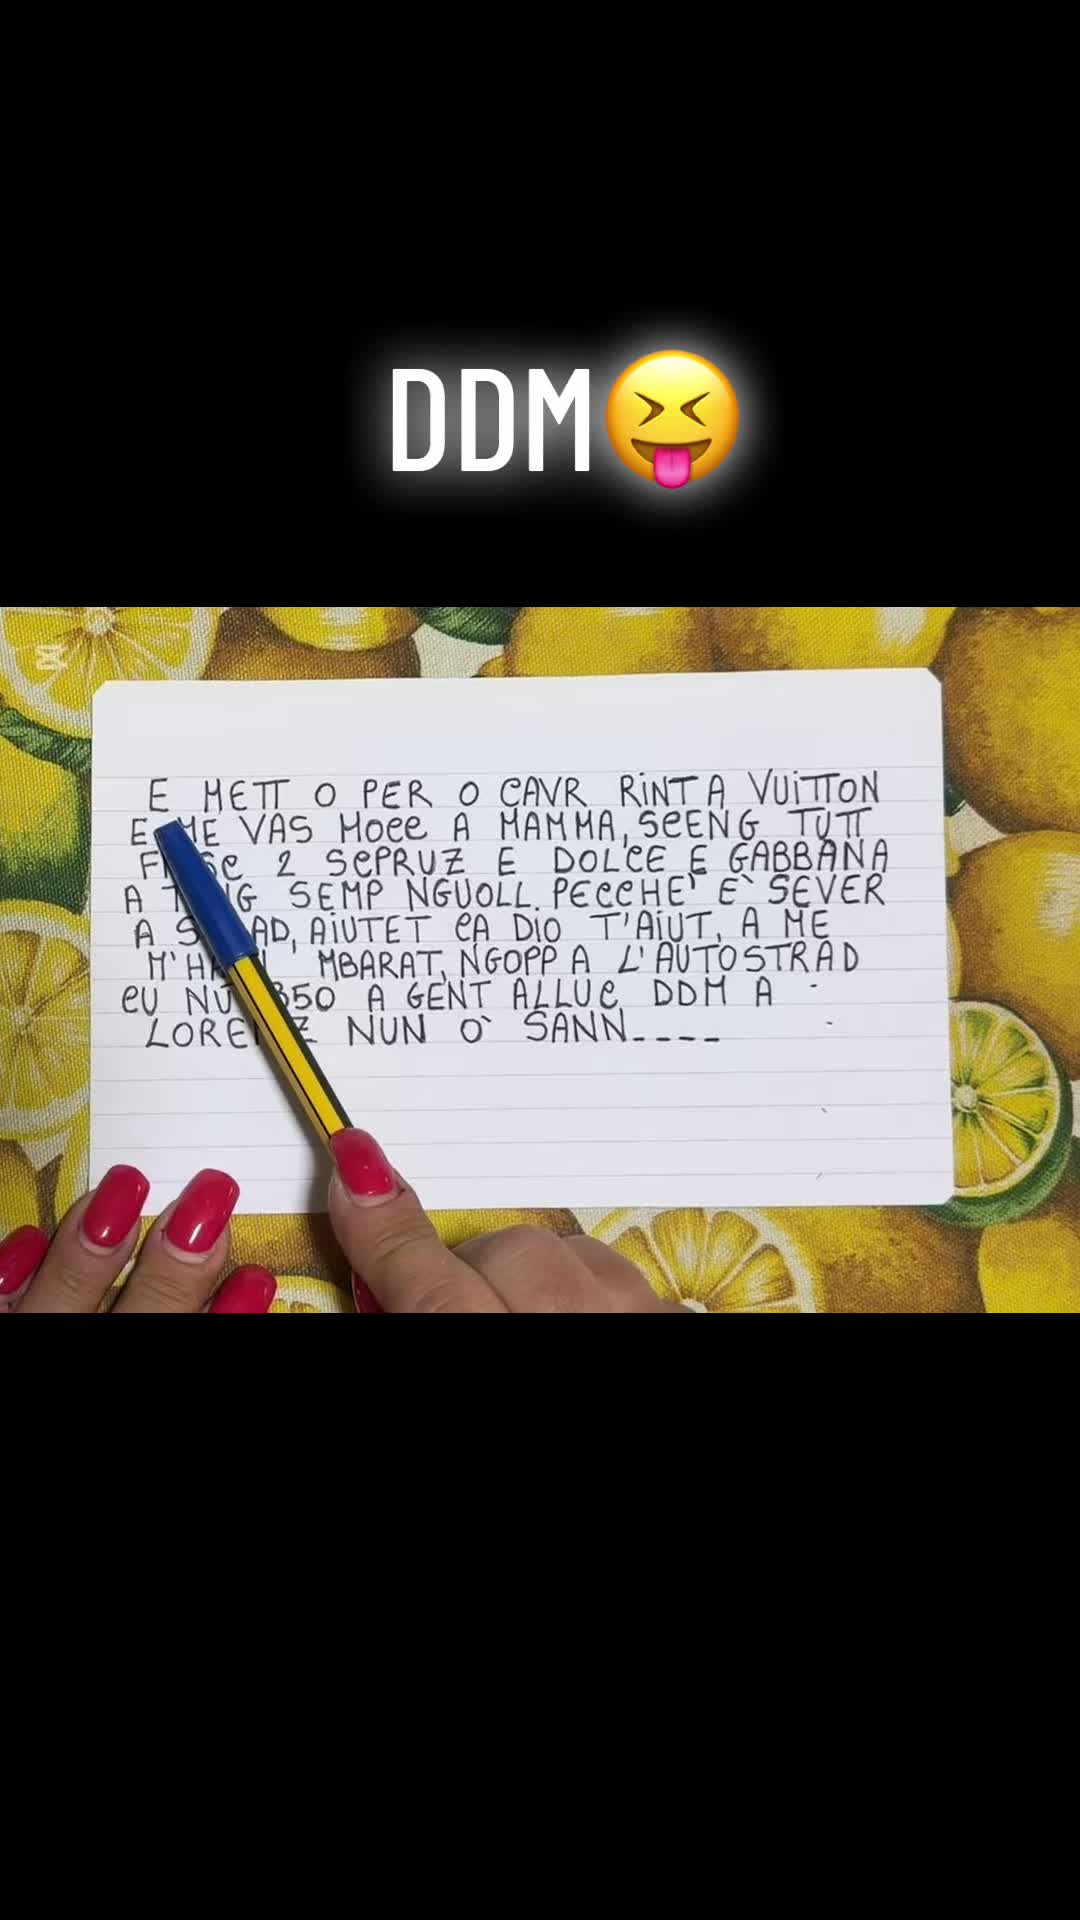 DDM😝
E METT O PER O CAVR RINT A VUITTON
E ME VAS MOCC A MAMMA, SCENG TUTT
2 SCPRUZ E DOLCE E GABBANA
A SEMP NGUOLL. PECCHE' E' SEVER
A AIUTET CA DIO T'AIUT, A ME
MBARAT, NGOPP A L'AUTOSTRAD
CU NU 350 A GENT ALLUC DDM A
NUN O' SANN----